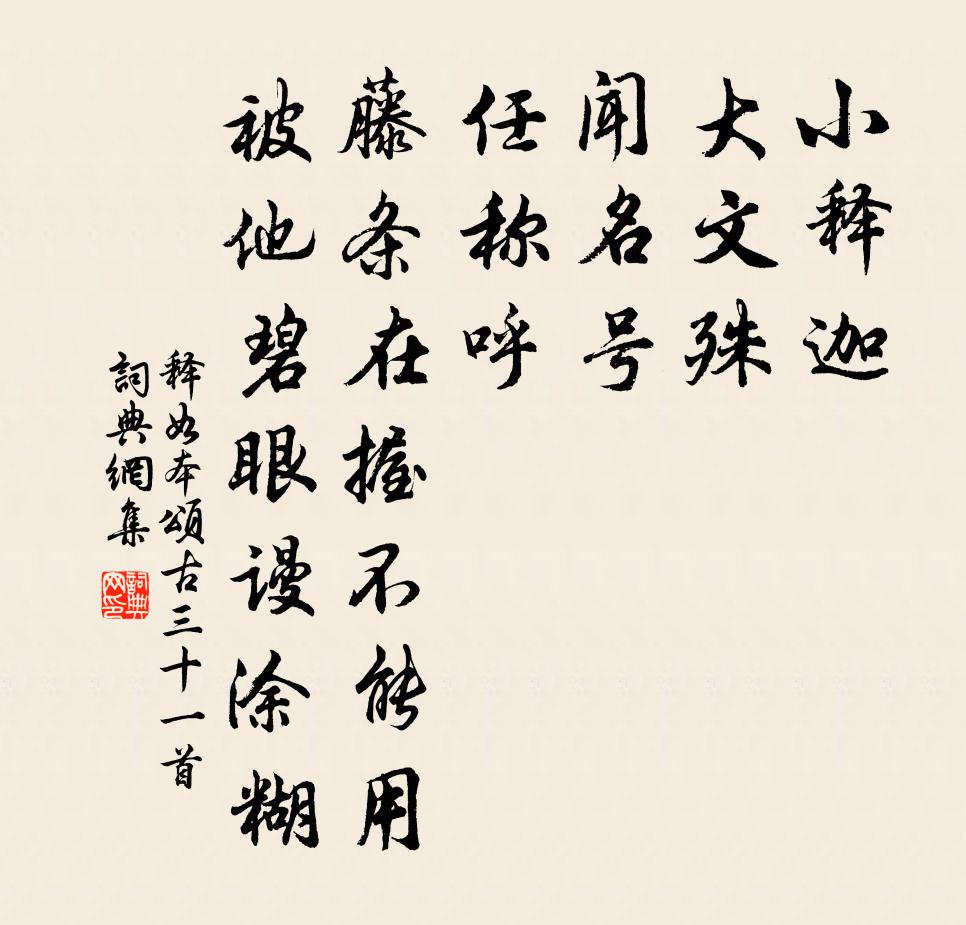 小释迦
大文殊
闻名号
任称呼
藤条在握不能用
被他碧眼谩涂糊
释如本頌古三十一首
詞典網集
詞典网印